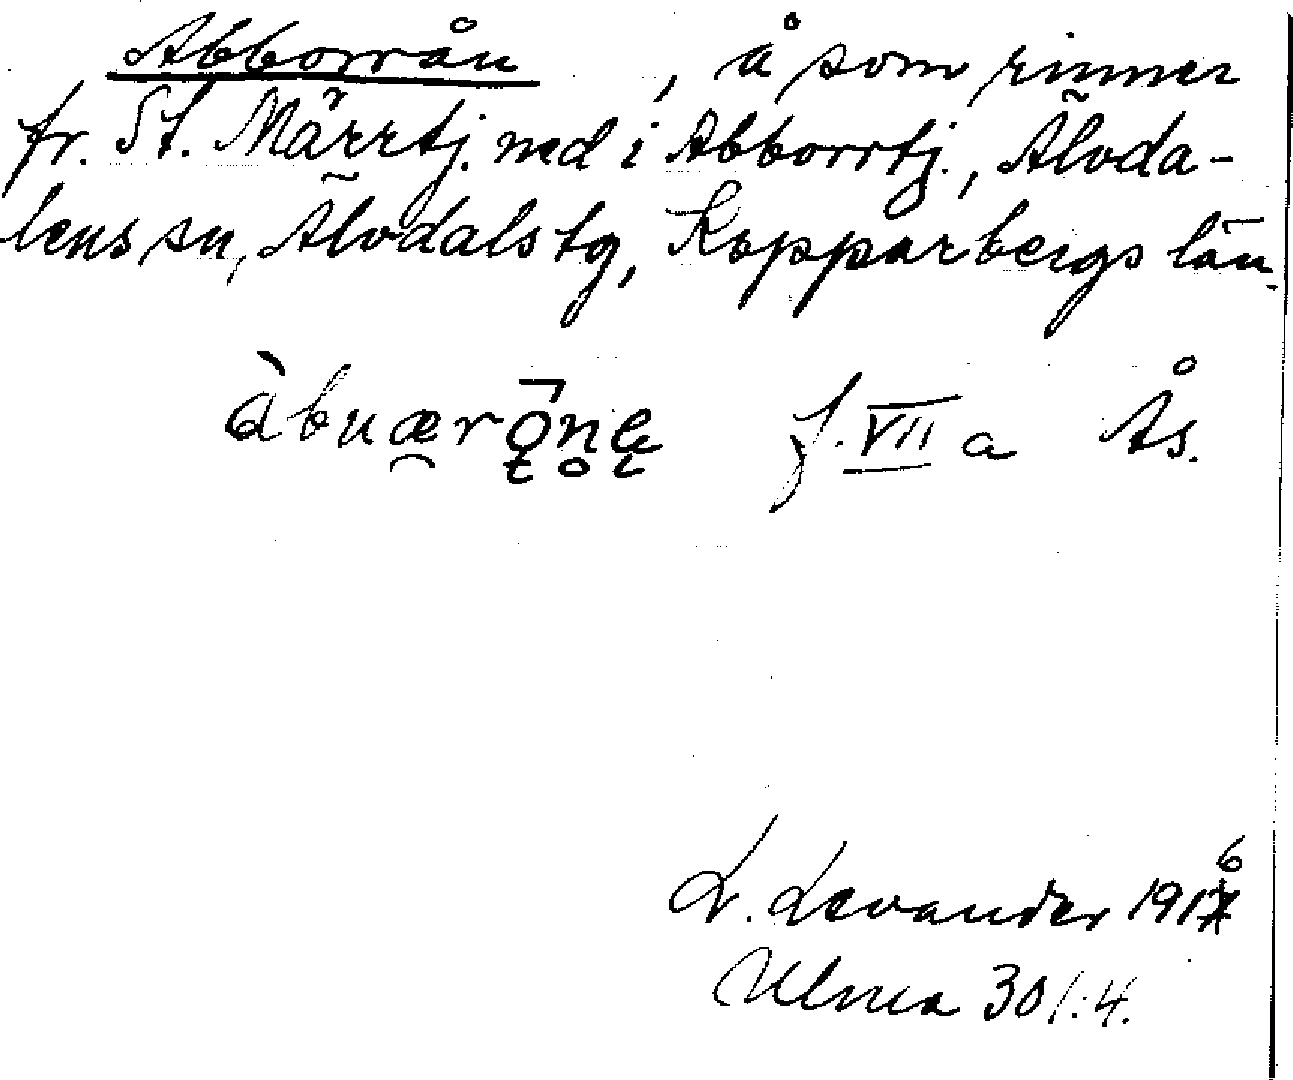 Abborrån, å som rinner
fr. St. Märrtj. ned i Abborrtj., Älvda-
lens sn, Älvdals tg, Kopparbergs län.
f. VII a Ås.
L. Levander 1916
Ulma 30/:4.